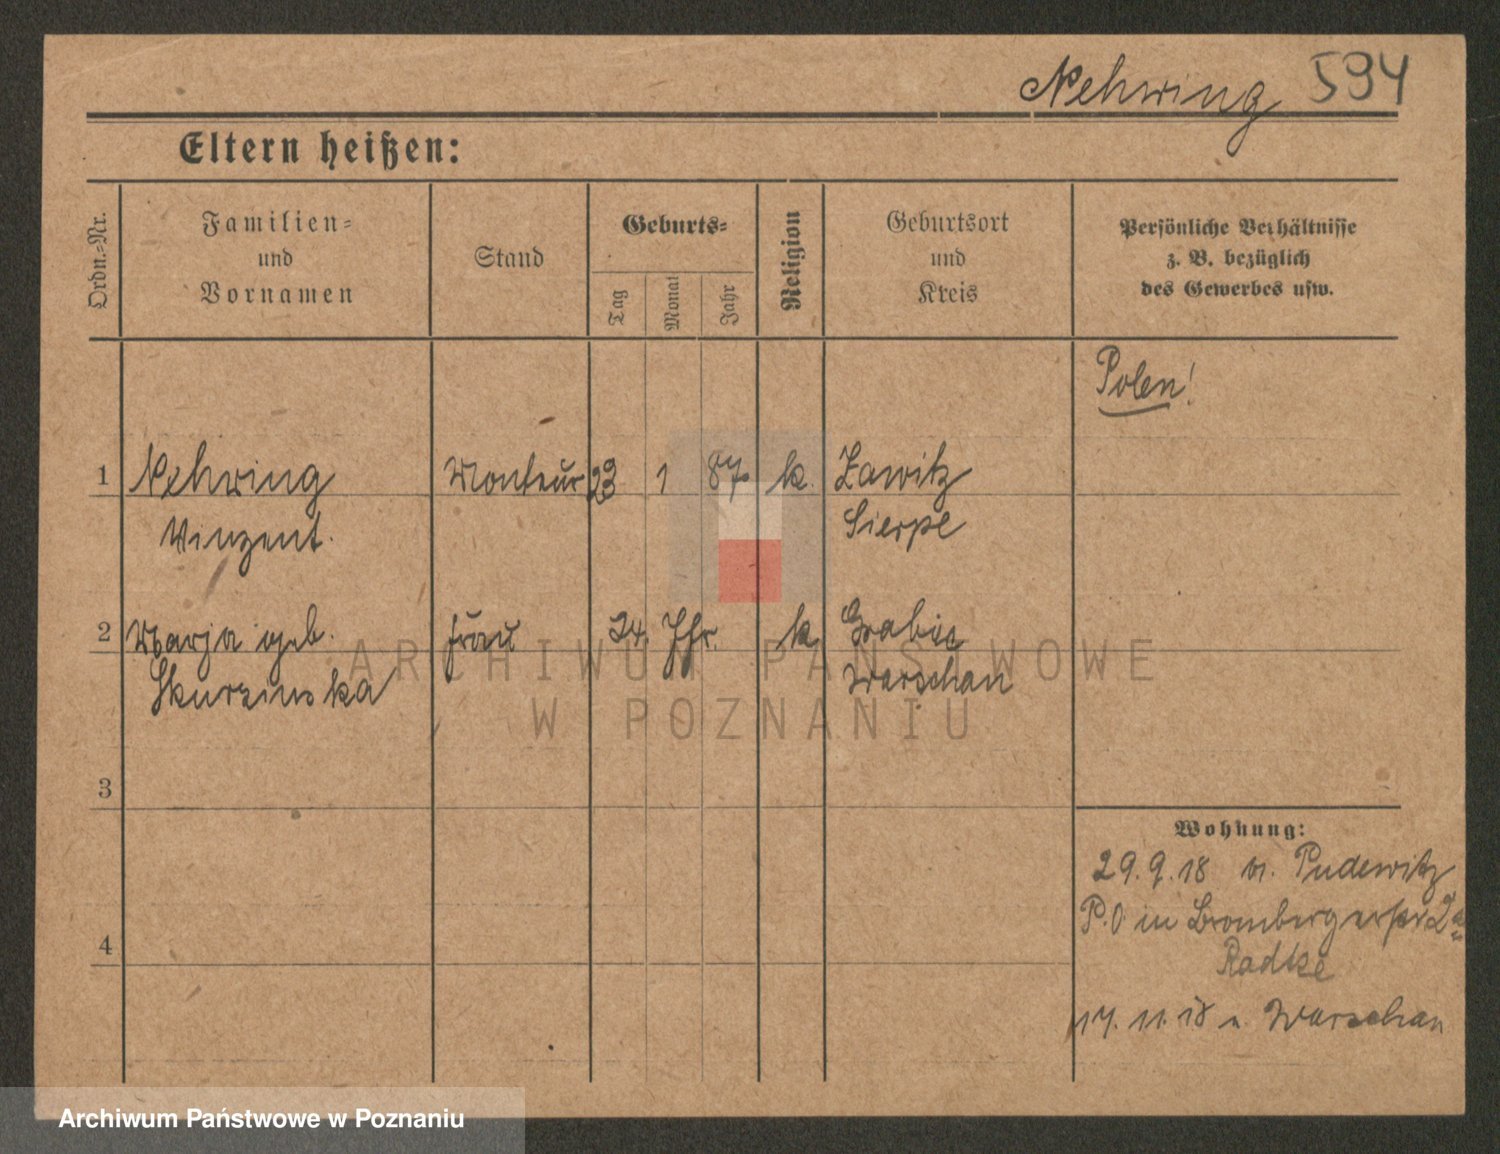 Nehring 594
Eltern heißen:
Ordn.-Nr.
Familien-
und
Vornamen
Stand
Geburts-
Tag
Monat
Jahr
Religion
Geburtsort
und
Kreis
Persönliche Verhältnisse
z. B. bezüglich
des Gewerbes usw.
Polen!
1 Nehring Monteur 23 1 87 k. Zawitz
Vinzent. Sierpe
2 Marja geb. Frau 24. k
Skurzinska Warschau
3
4
Wohnung:
29.9.18 v. Pudewitz
P.O in Brombergerstr 2a
Radtke
17.11.18 n. Warschau
ARCHIWUM PAŃSTWOWE
W POZNANIU
Archiwum Państwowe w Poznaniu